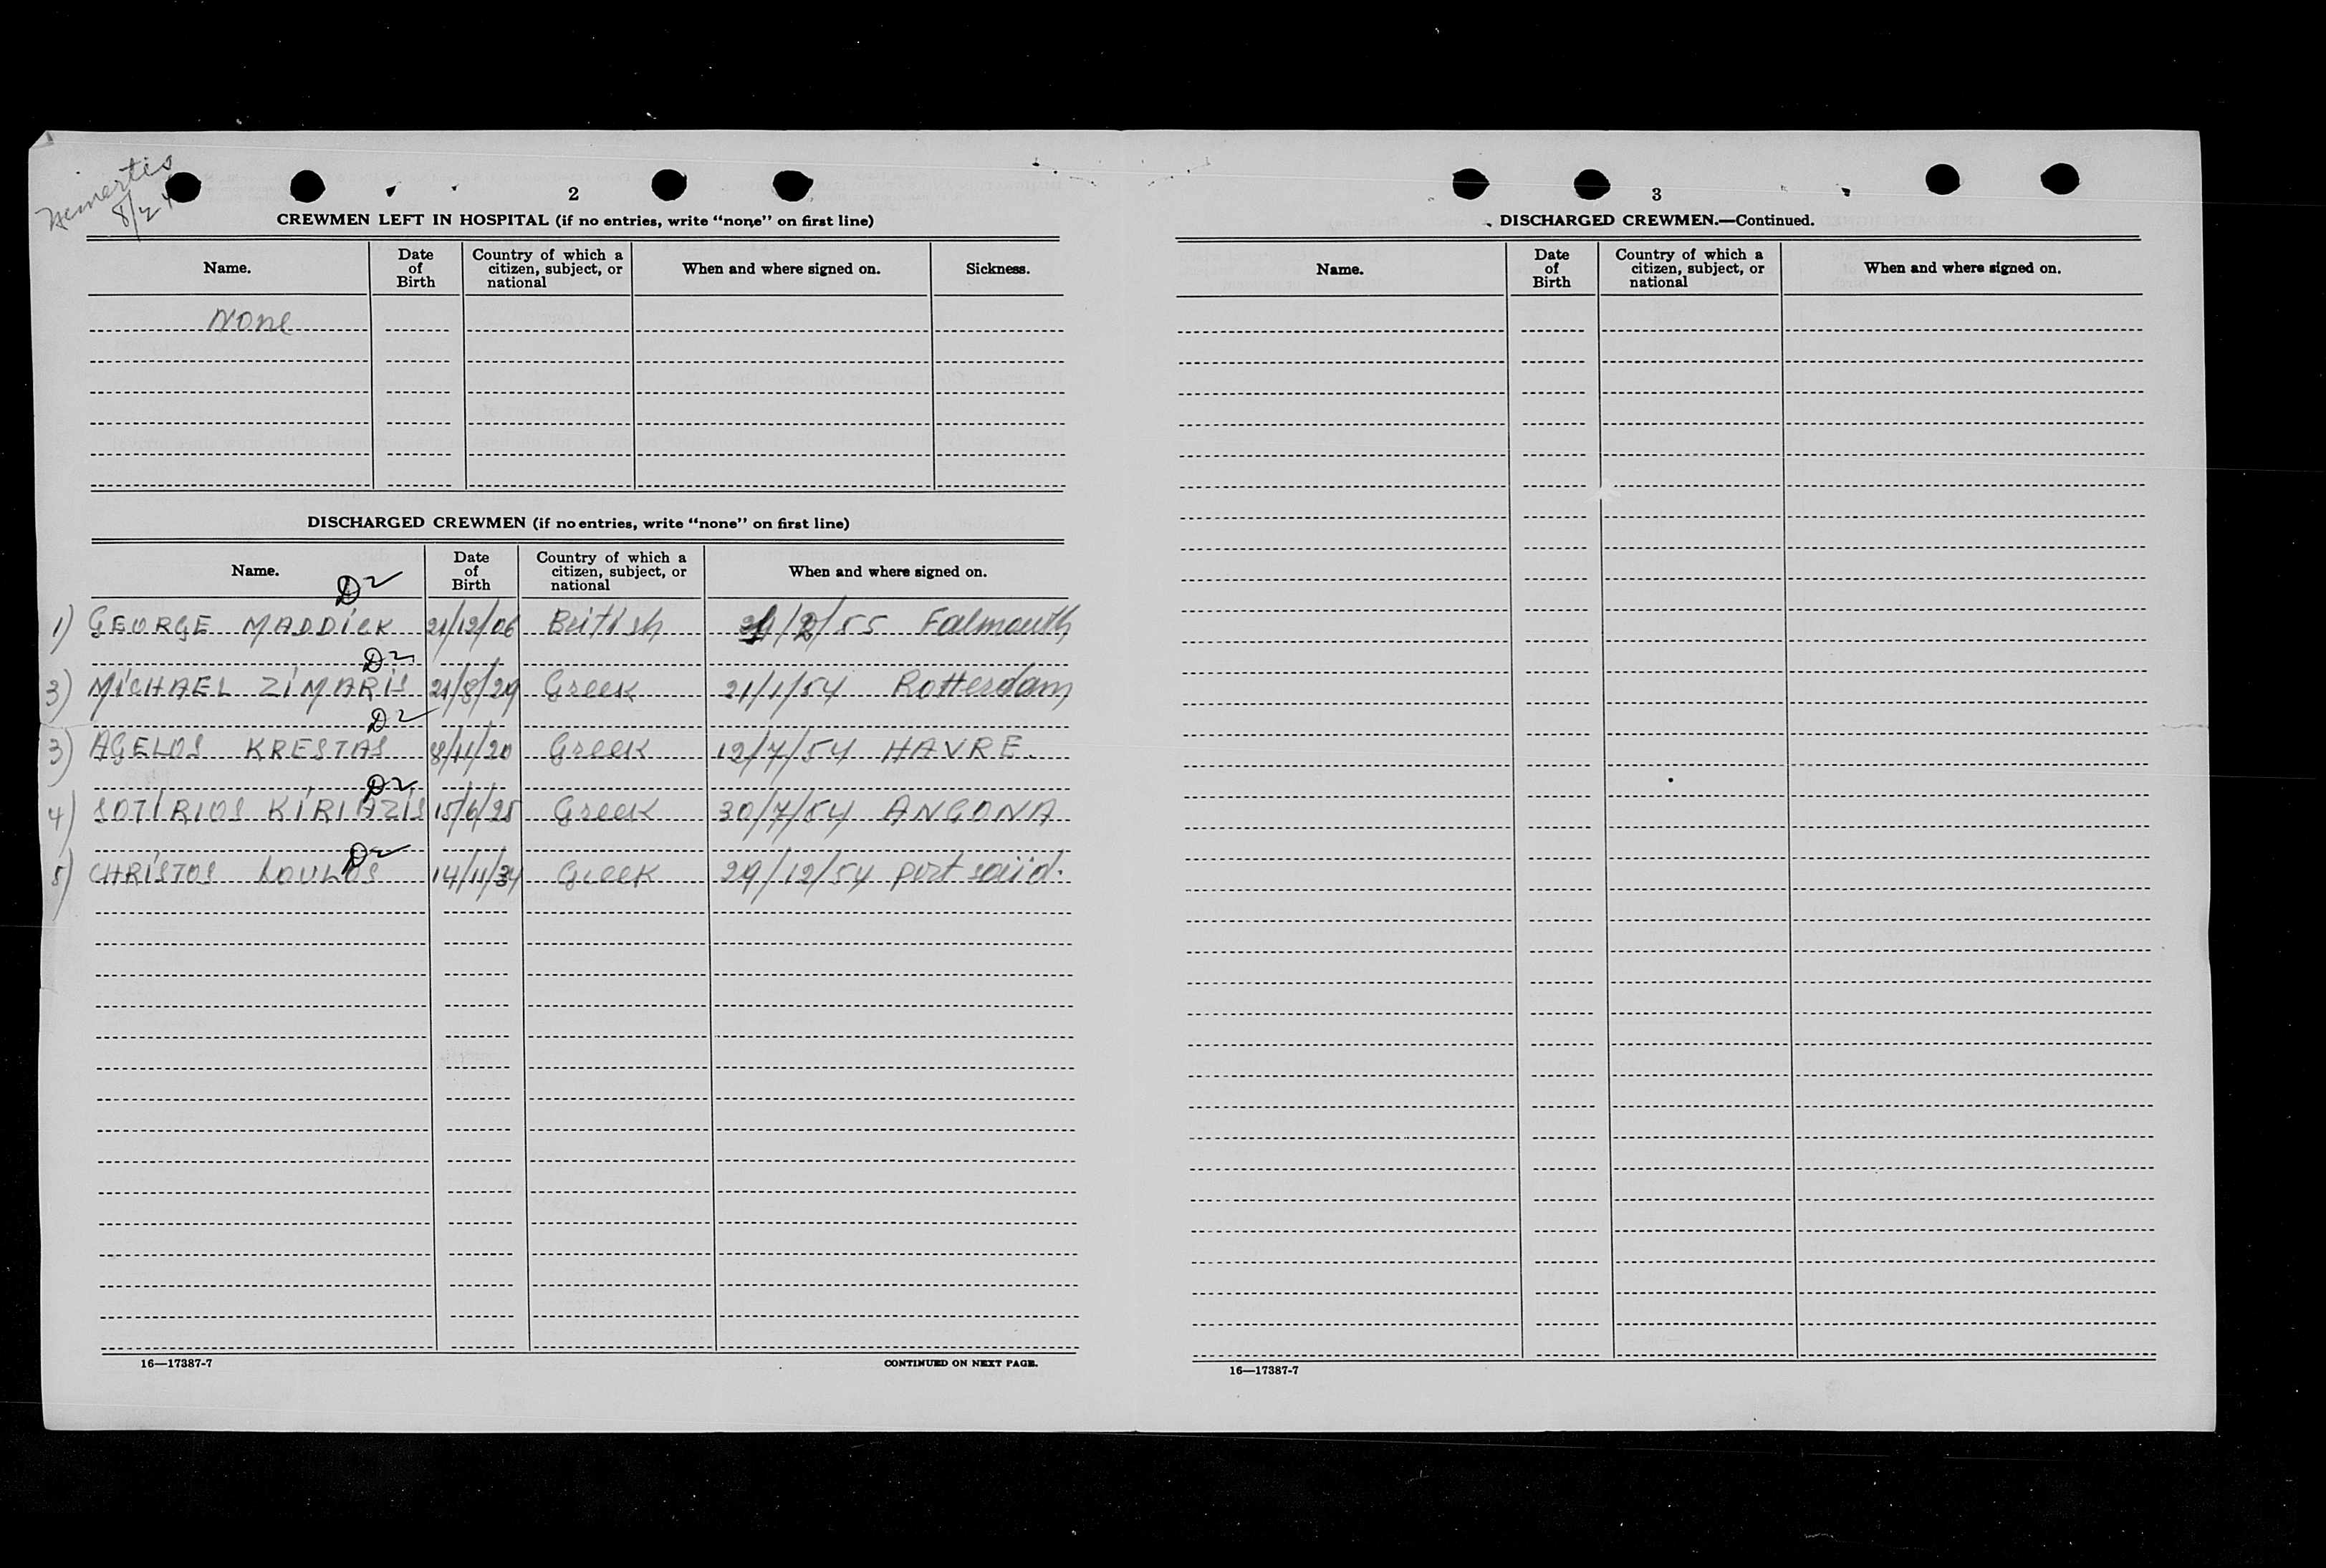 Nemertis
8/24
2
CREWMEN LEFT IN HOSPITAL (if no entries, write “none” on first line)
Name. Date of Birth Country of which a citizen, subject, or national When and where signed on. Sickness.
None
DISCHARGED CREWMEN (if no entries, write “none” on first line)
Name. Date of Birth Country of which a citizen, subject, or national When and where signed on.
D2
1) GEORGE MADDICK 21/12/06 British /2/55 Falmouth
D2
3) MICHAEL ZIMARIS 21/8/29 Greek 21/1/54 Rotterdam
D2
3) AGELOS KRESTAS 8/11/20 Greek 12/7/54 HAVRE.
D2
4) SOTIRIOS KIRIAZIS 15/6/25 Greek 30/7/54 ANGONA
D2
5) CHRISTOS LOULOS 14/11/34 Greek 29/12/54 port saiid.
16—17387-7 CONTINUED ON NEXT PAGE.
3
DISCHARGED CREWMEN.—Continued.
Name. Date of Birth Country of which a citizen, subject, or national When and where signed on.
16—17387-7